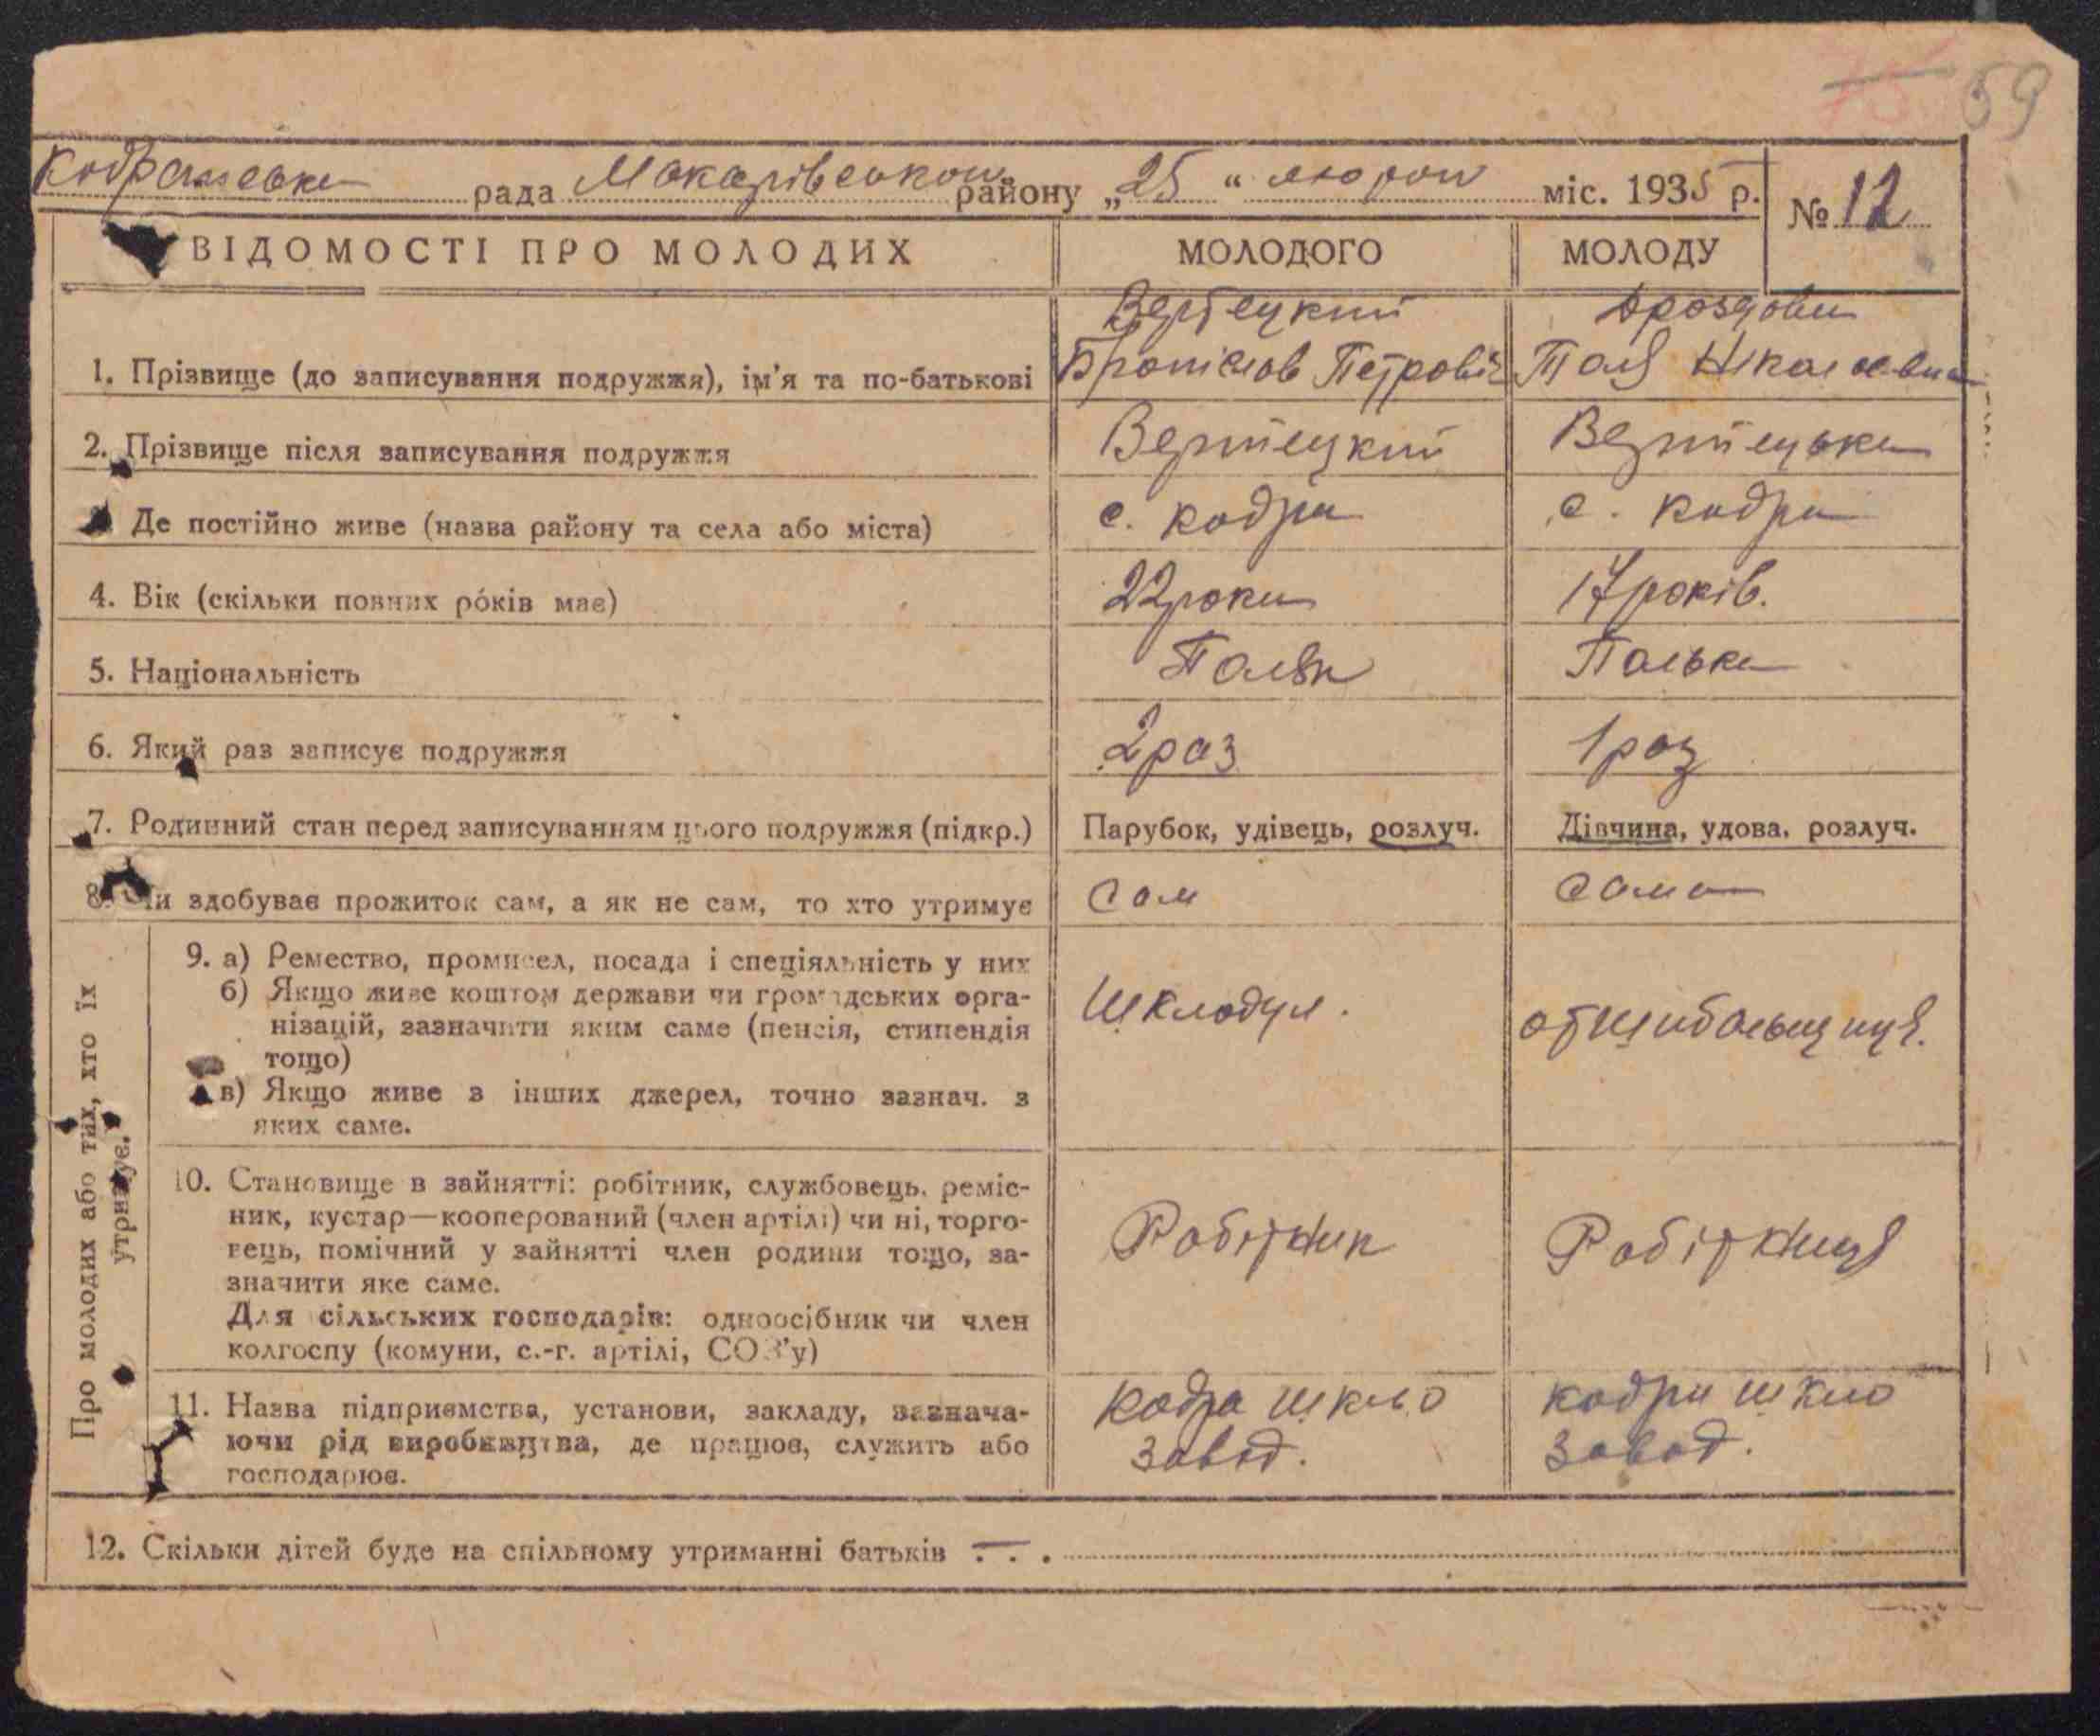 75 59
Кодранська рада Макарівського району „25“ лютого міс. 1935 р. № 12
ВІДОМОСТІ ПРО МОЛОДИХ МОЛОДОГО МОЛОДУ
Вертецкий Дроздова
1. Прізвище (до записування подружжя), ім’я та по-батькові Броніслав Петровіч
2. Прізвище після записування подружжя Вертецкий Вертецька
Де постійно живе (назва району та села або міста) с. Кодра с. Кодра
4. Вік (скільки повних ро́ків має) 22 роки 17 років.
5. Національність Поляк Полька
6. Який раз записує подружжя 2 раз 1 раз
7. Родинний стан перед записуванням цього подружжя (підкр.) Парубок, удівець, розлуч. Дівчина, удова, розлуч.
8. Чи здобуває прожиток сам, а як не сам, то хто утримує Сам Сама
Про молодих або тих, хто їх утримує.
9. а) Ремество, промисел, посада і спеціяльність у них
б) Якщо живе коштом держави чи громадських орга-
нізацій, зазначити яким саме (пенсія, стипендія
тощо)
в) Якщо живе з інших джерел, точно зазнач. з
яких саме.
Шклодув. отшибальщиця.
10. Становище в зайнятті: робітник, службовець, реміс-
ник, кустар—кооперований (член артілі) чи ні, торго-
вець, помічний у зайнятті член родини тощо, за-
значити яке саме.
Для сільських господарів: одноосібник чи член
колгоспу (комуни, с.-г. артілі, СОЗ’у)
Робітник Робітниця
11. Назва підприємства, установи, закладу, зазнача-
ючи рід виробництва, де працює, служить або
господарює.
Кодра шкло Кодра шкло
завод. завод.
12. Скільки дітей буде на спільному утриманні батьків —